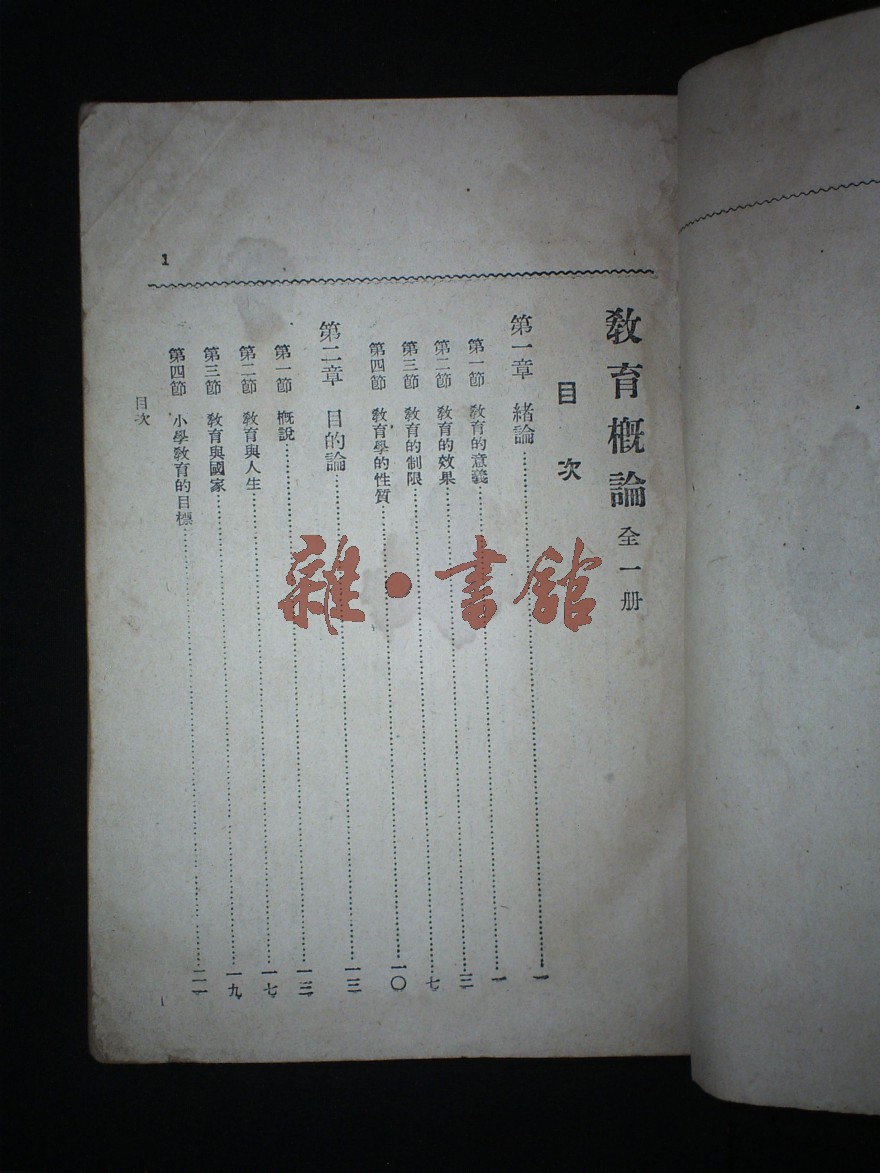 教育概論 全一册
目次
第一章 緒論……一
第一節 教育的意義……一
第二節 教育的效果……三
第三節 教育的制限……七
第四節 教育學的性質……一〇
第二章 目的論……一三
第一節 概說……一三
第二節 教育與人生……一七
第三節 教育與國家……一九
第四節 小學教育的目標……二一
目次
1
雜·書館